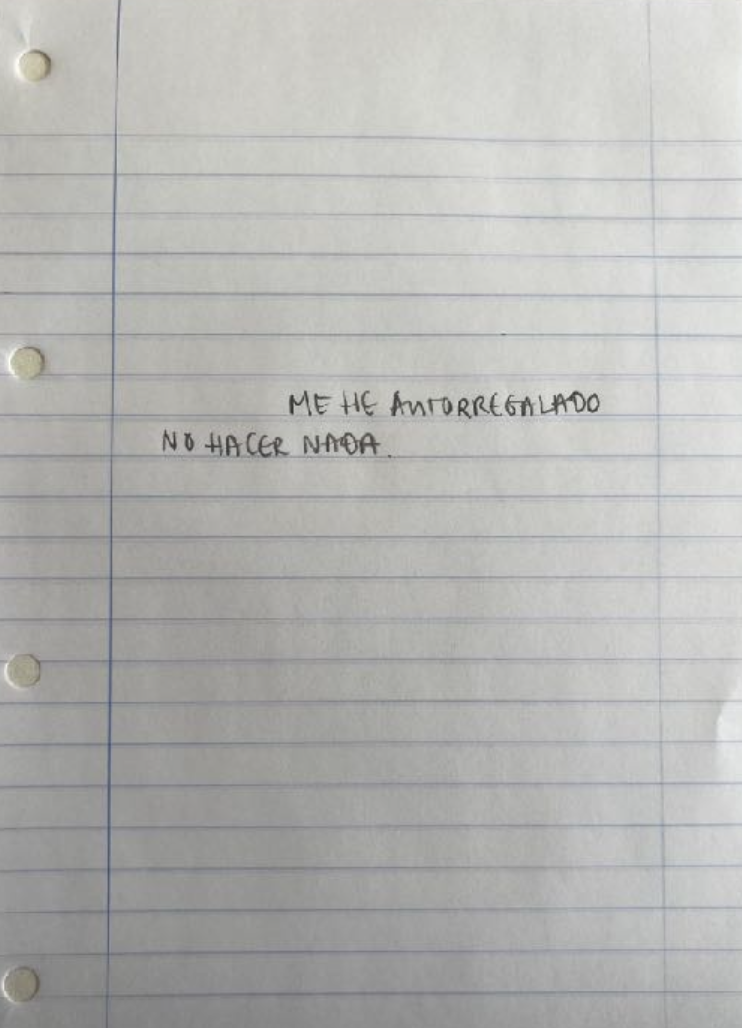 ME HE AUTORREGALADO
NO HACER NADA.